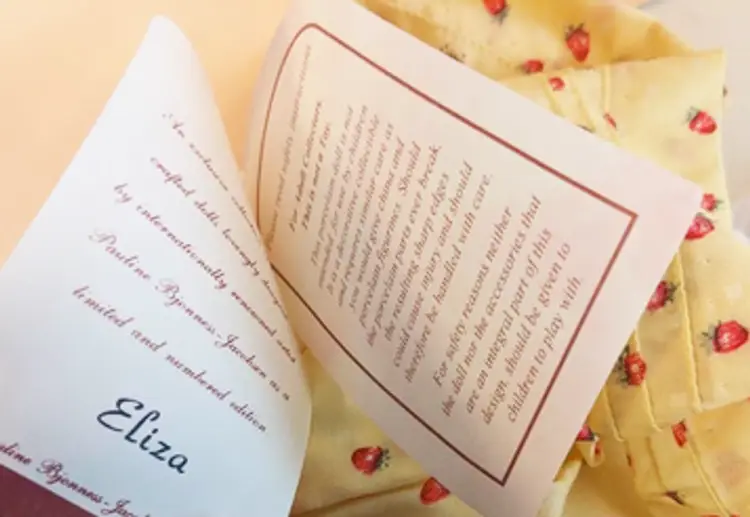 An exclusive
crafted dolls, lovingly
by internationally renowned artist
Pauline Bjonness-Jacobsen as a
limited and numbered edition
Eliza
Pauline Bjonness-Jacobsen
Please read safety instructions
For Adult Collectors.
This is not a Toy.
This porcelain doll is not
intended for use by children
It is a decorative collectible
and requires similar care as
you would give china and
porcelain figurines. Should
the porcelain parts ever break,
the resulting, sharp edges
could cause injury and should
therefore be handled with care.
For safety reasons neither
the doll nor the accessories that
are an integral part of this
design, should be given to
children to play with.